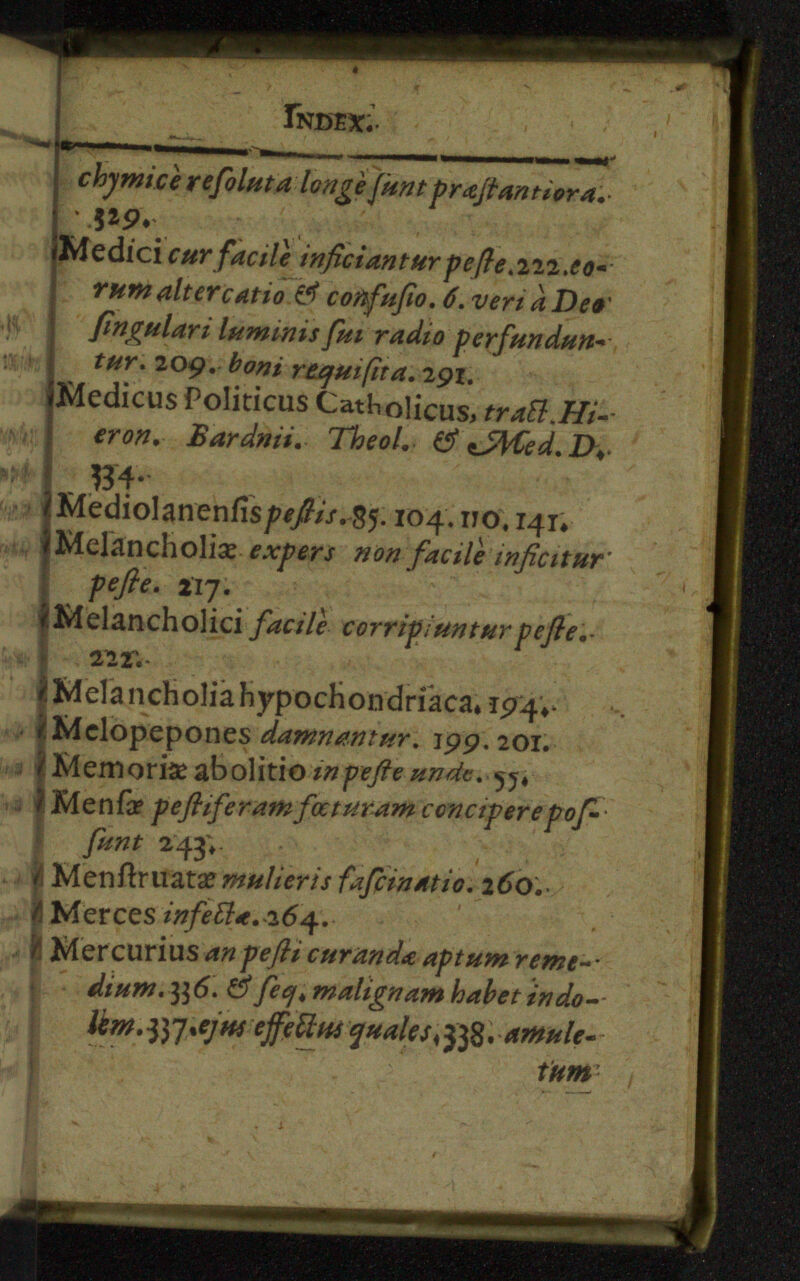 INDEX.
chymicè reſoluta longè ſunt præſtantiora.
329.
Medici cur facilè inficiantur peſte. 222. eo-
rum altercatio & confuſio. 6. veri à Deo
ſingulari luminis ſui radio perfundun-
tur. 209. boni requiſita. 291.
Medicus Politicus Catholicus, tract. Hi-
eron. Bardnii. Theol. & Med. D.
334.
Mediolanenſis peſtis. 85. 104. 110. 141.
Melancholiæ expers non facilè inficitur
peſte. 217.
Melancholici facilè corripiuntur peſte.
221.
Melancholia hypochondriaca. 194.
Melopepones damnantur. 199. 201.
Memoriæ abolitio in peſte unde. 55.
Menſæ peſtiferam fœturam concipere poſ-
ſunt 243.
Menſtruatæ mulieris faſcinatio. 260.
Merces infectæ. 264.
Mercurius an peſti curandæ aptum reme-
dium. 336. & ſeq. malignam habet indo-
lem. 337. ejus effectus quales, 338. amule-
tum